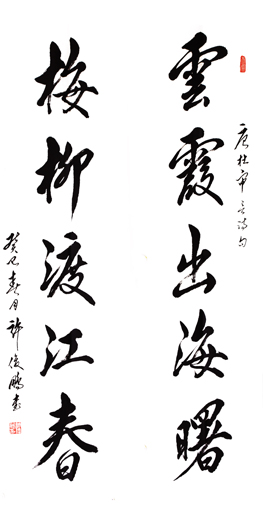 雲霞出海曙
唐杜審言詩句
梅柳渡江春
癸巳春月許俊鵬書